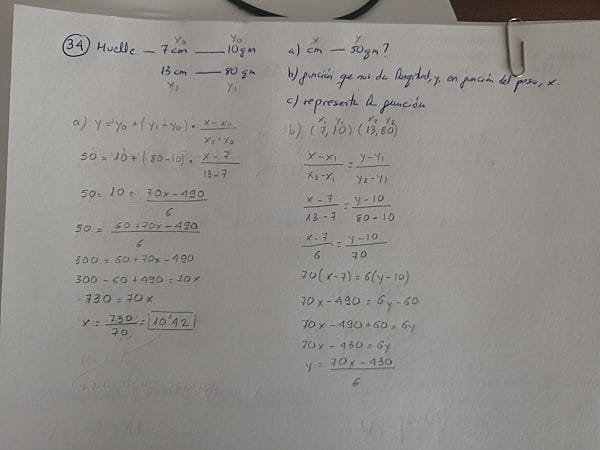 x₀ y₀
34 Muelle — 7 cm — 10 gm
13 cm — 80 gm
x₁ y₁
x y
a) cm — 50 gm?
b) función que nos da longitud, y, en función del peso, x.
c) representa la función
a) y = y₀ + (y₁ - y₀) · x - x₀ / x₁ - x₀
50 = 10 + (80 - 10) · x - 7 / 13 - 7
50 = 10 + 70x - 490 / 6
50 = 60 + 70x - 490 / 6
300 = 60 + 70x - 490
300 - 60 + 490 = 70x
730 = 70x
x = 730 / 70 = 10'42
x₁ y₁ x₂ y₂
b) (7, 10) (13, 80)
x - x₁ / x₂ - x₁ = y - y₁ / y₂ - y₁
x - 7 / 13 - 7 = y - 10 / 80 - 10
x - 7 / 6 = y - 10 / 70
70(x - 7) = 6(y - 10)
70x - 490 = 6y - 60
70x - 490 + 60 = 6y
70x - 430 = 6y
y = 70x - 430 / 6